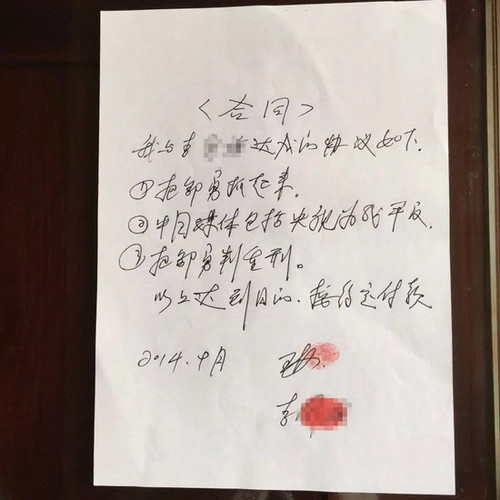 〈合同〉
我与李 达成的协议如下.
①把邹勇抓起来.
②中国媒体包括央视为我平反.
③把邹勇判重刑。
以上达到目的.按约定付款
2014.9月
王林
李